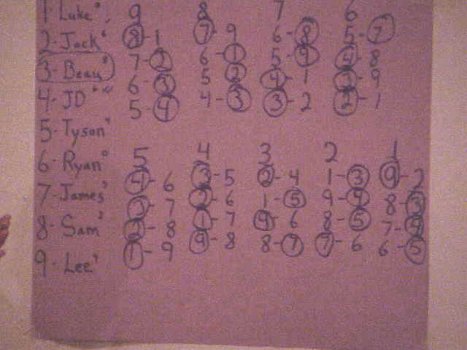 1 Luke
2-Jack
3-Beau
4-JD
5-Tyson
6-Ryan
7-James
8-Sam
9-Lee
9 8 7 6
8-1 7-9 6-8 5-7
7-2 6-1 5-9 4-8
6-3 5-2 4-1 3-9
5-4 4-3 3-2 2-1
5 4 3 2 1
4-6 3-5 2-4 1-3 9-2
3-7 2-6 1-5 9-4 8-3
2-8 1-7 9-6 8-5 7-4
1-9 9-8 8-7 7-6 6-5